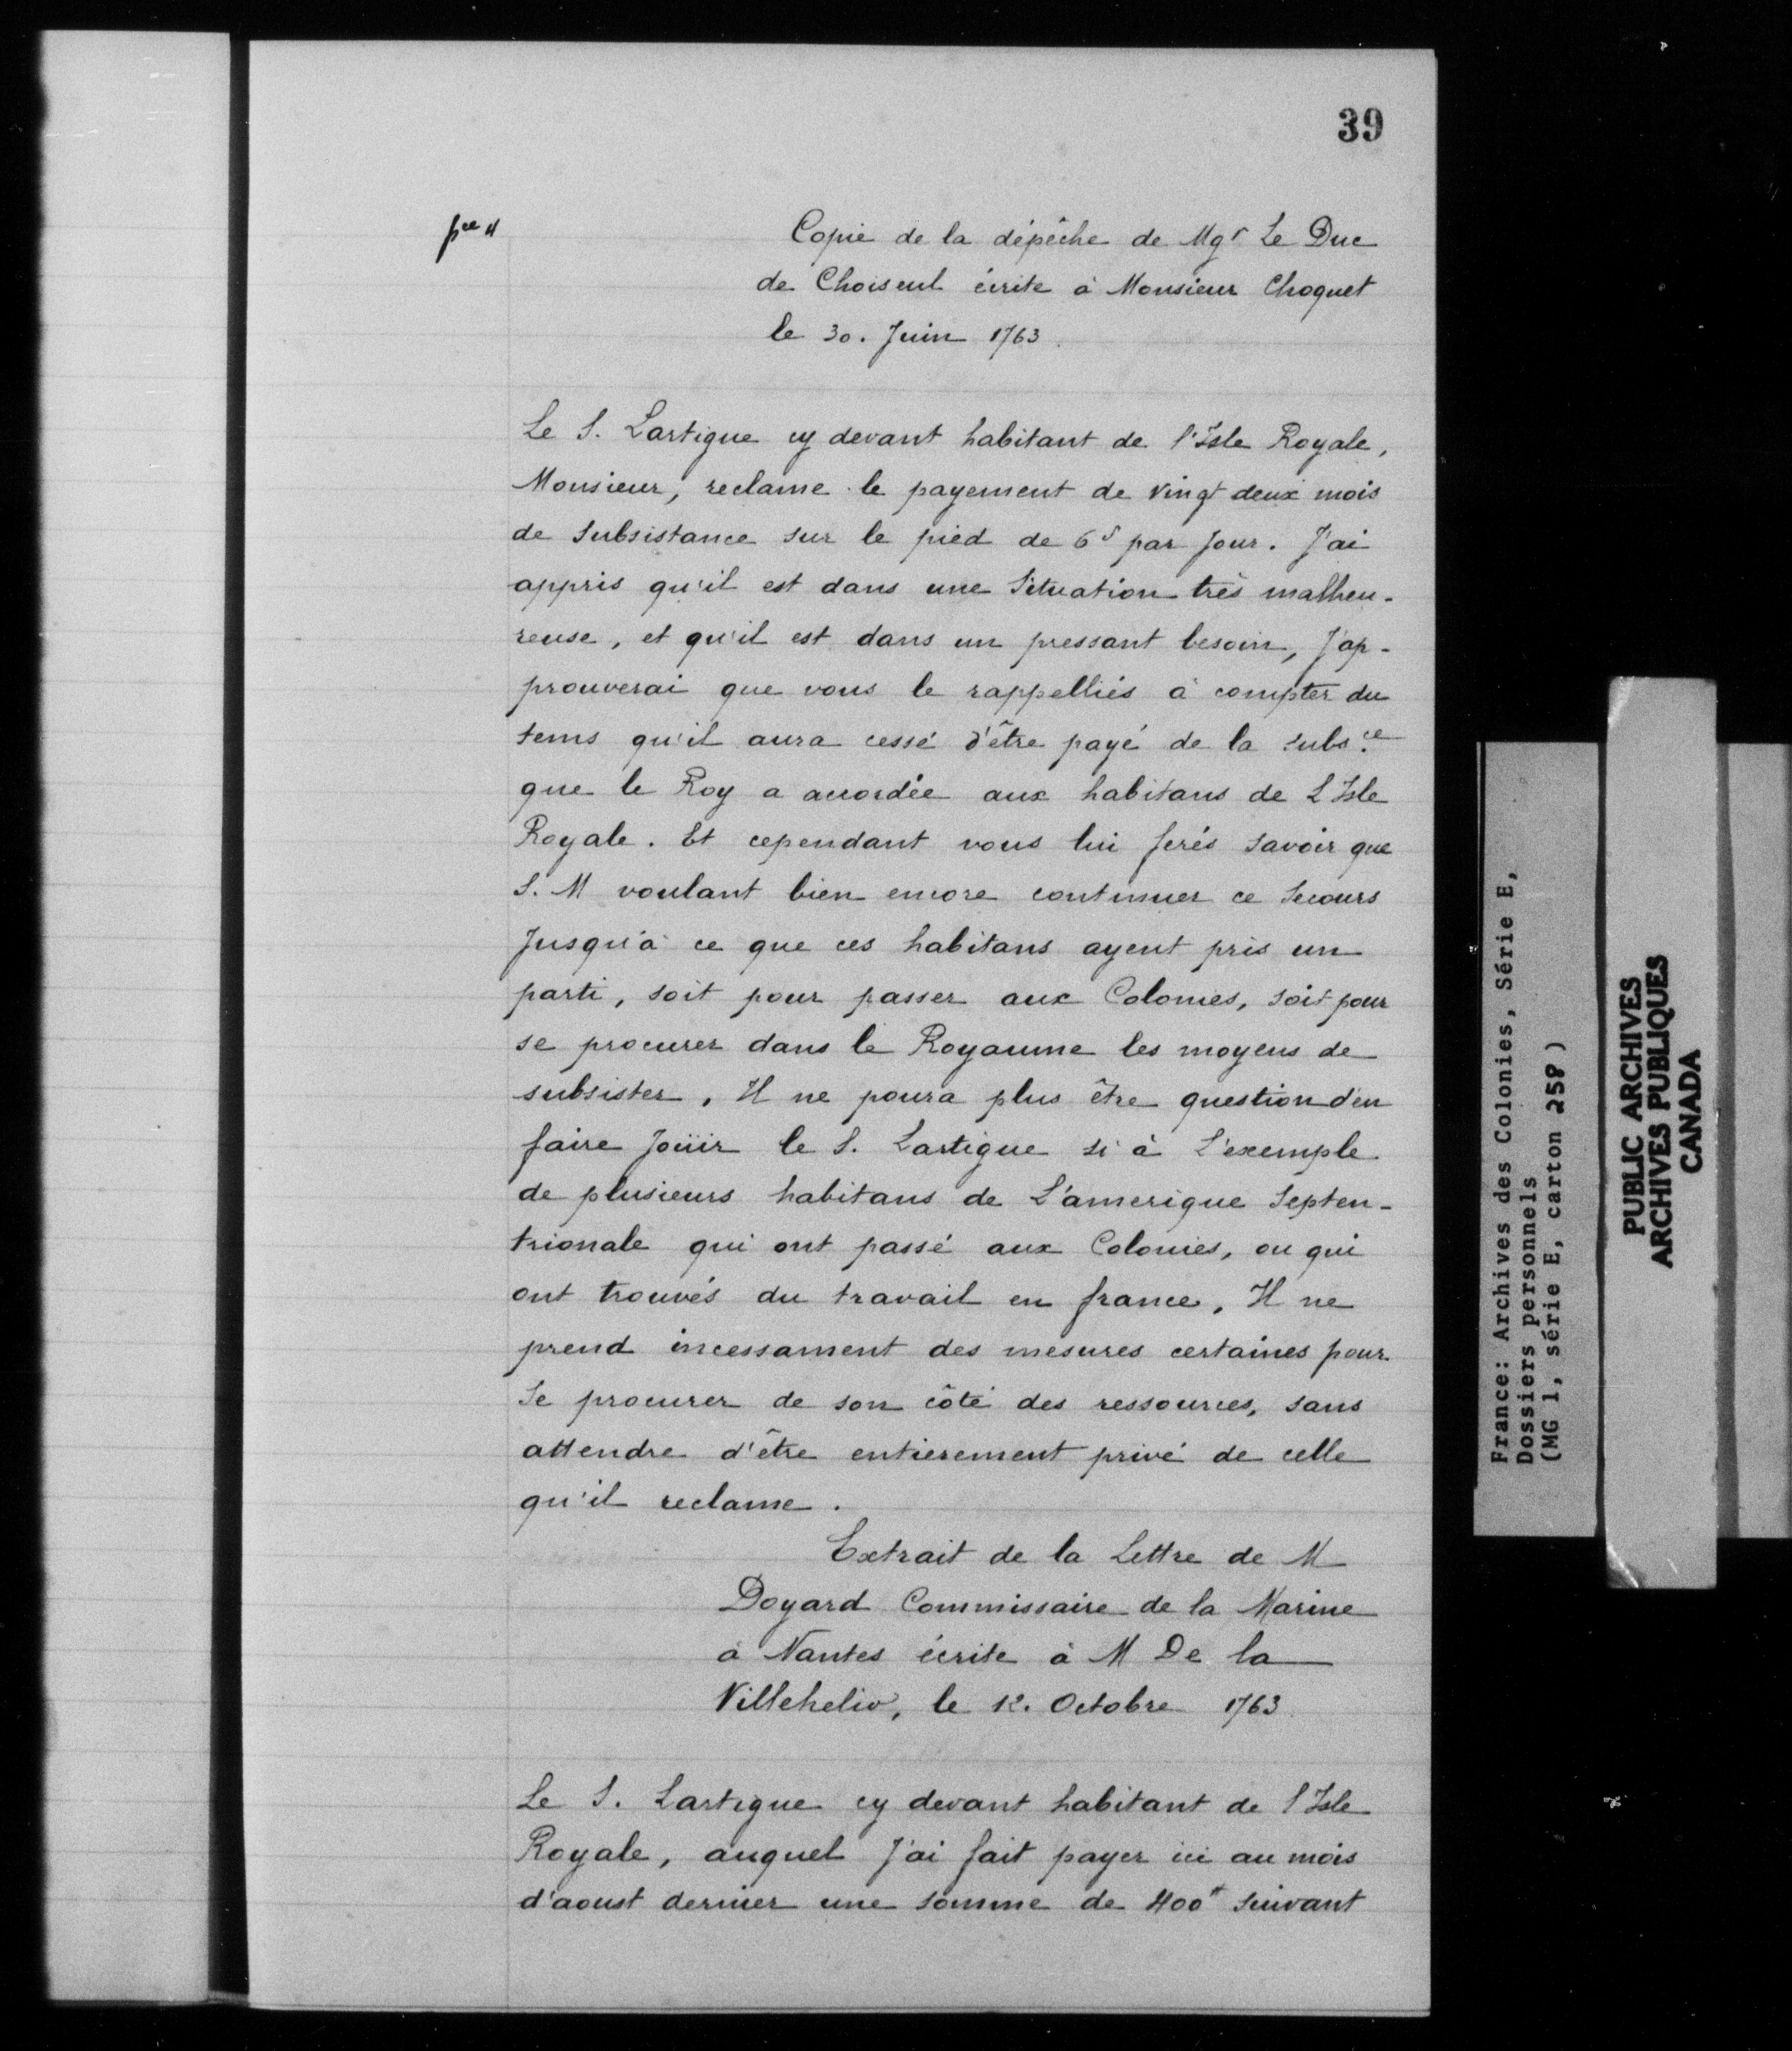 39
pce 4
Copie de la dépêche de Mgr Le Duc
de Choiseul écrite à Monsieur Choquet
le 30. Juin 1763.
Le S. Lartigue cy devant habitant de l'Isle Royale,
Monsieur, reclame le payement de vingt deux mois
de subsistance sur le pied de 6s par Jour. J'ai
appris qu'il est dans une Situation très malheu-
reuse, et qu'il est dans un pressant besoin, J'ap-
prouverai que vous le rappelliés à compter du
tems qu'il aura cessé d'être payé de la subsce
que le Roy a accordée aux habitans de L'Isle
Royale. Et cependant vous lui ferés savoir que
S. M voulant bien encore continuer ce Secours
Jusqu'à ce que ces habitans ayent pris un
parti, soit pour passer aux Colonies, soit pour
se procurer dans le Royaume les moyens de
subsister, Il ne poura plus être question d'en
faire Joüir le S. Lartigue si à L'exemple
de plusieurs habitans de L'amerique Septen-
trionale qui ont passé aux Colonies, ou qui
ont trouvés du travail en france, Il ne
prend incessament des mesures certaines pour
Se procurer de son côté des ressources, sans
attendre d'être entierement privé de celle
qu'il reclame.
Extrait de la Lettre de M
Doyard Commissaire de la Marine
à Nantes écrite à M De la
Villehelio, le 12. Octobre 1763
Le S. Lartigue cy devant habitant de l'Isle
Royale, auquel J'ai fait payer ici au mois
d'aoust dernier une somme de 400# suivant
France: Archives des Colonies, Série E,
Dossiers personnels
(MG 1, série E, carton 258)
PUBLIC ARCHIVES
ARCHIVES PUBLIQUES
CANADA